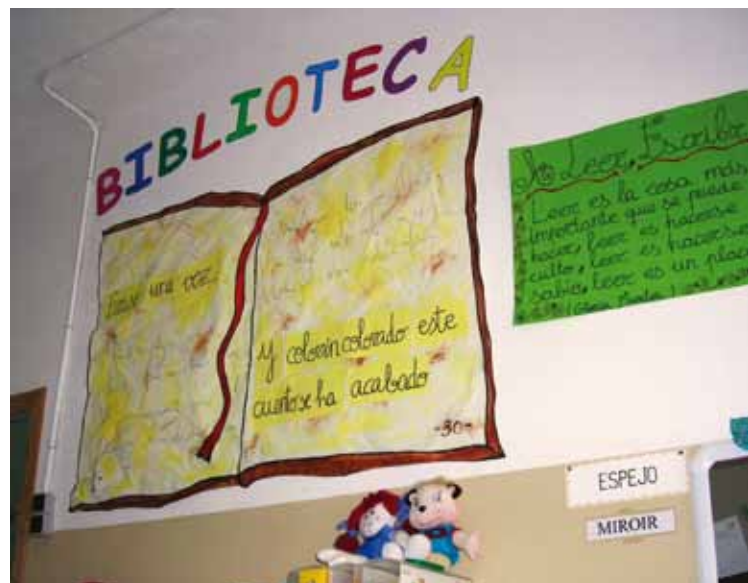 BIBLIOTECA
Erase una vez...
y colorin colorado este
cuento se ha acabado
-30-
Leer, Escribir
Leer es la cosa más
importante que se puede
hacer, leer es hacerse
culto, leer es hacerse
sabio, leer es un place
ESPEJO
MIROIR